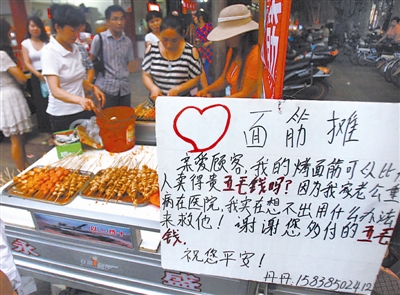 面筋摊
亲爱顾客,我的烤面筋可以比
人卖得贵五毛钱吗?因为我家老公重
病在医院,我实在想不出用什么办法
来救他!谢谢您多付的五毛
钱.
祝您平安!
丹丹.15838502412